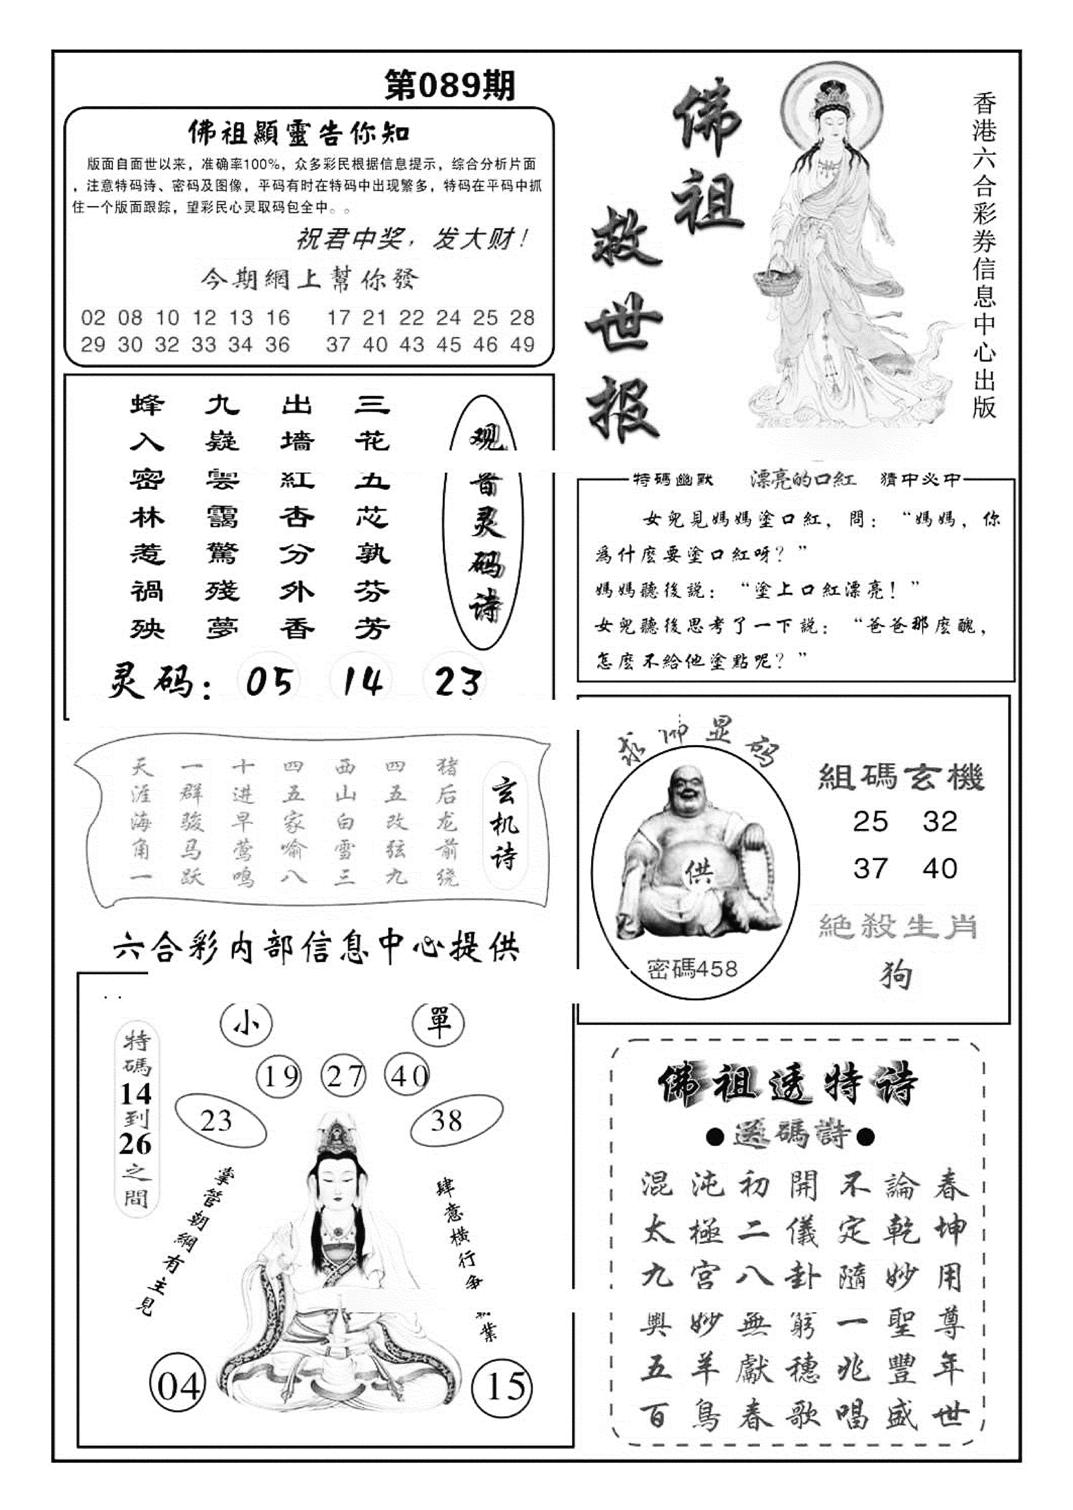 第089期
佛祖顯靈告你知
版面自面世以来，准确率100%，众多彩民根据信息提示，综合分析片面
，注意特码诗、密码及图像，平码有时在特码中出现繁多，特码在平码中抓
住一个版面跟踪，望彩民心灵取码包全中。。
祝君中奖，发大财！
今期網上幫你發
02 08 10 12 13 16 17 21 22 24 25 28
29 30 32 33 34 36 37 40 43 45 46 49
佛祖
救世报
香港六合彩券信息中心出版
观音灵码诗
三花五芯孰芬芳
出墙紅杏分外香
九嶷雲靄驚殘夢
蜂入密林惹禍殃
灵码：05 14 23
特碼幽默 漂亮的口紅 猜中必中
女兒見媽媽塗口紅，問：“媽媽，你
為什麽要塗口紅呀？”
媽媽聽後説：“塗上口紅漂亮！”
女兒聽後思考了一下説：“爸爸那麽醜，
怎麽不給他塗點呢？”
玄机诗
猪后龙前绕
四五改弦九
西山白雪三
四五家喻八
十进早莺鸣
一群骏马跃
天涯海角一
求佛显码
供
密碼458
組碼玄機
25 32
37 40
絕殺生肖
狗
六合彩内部信息中心提供
特碼14到26之間
小
單
19 27 40
23
38
掌管朝綱有主見
肆意橫行争業
04
15
佛祖透特诗
●送碼詩●
混沌初開不論春
太極二儀定乾坤
九宮八卦隨妙用
興妙無窮一聖尊
五羊獻穗兆豐年
百鳥春歌唱盛世